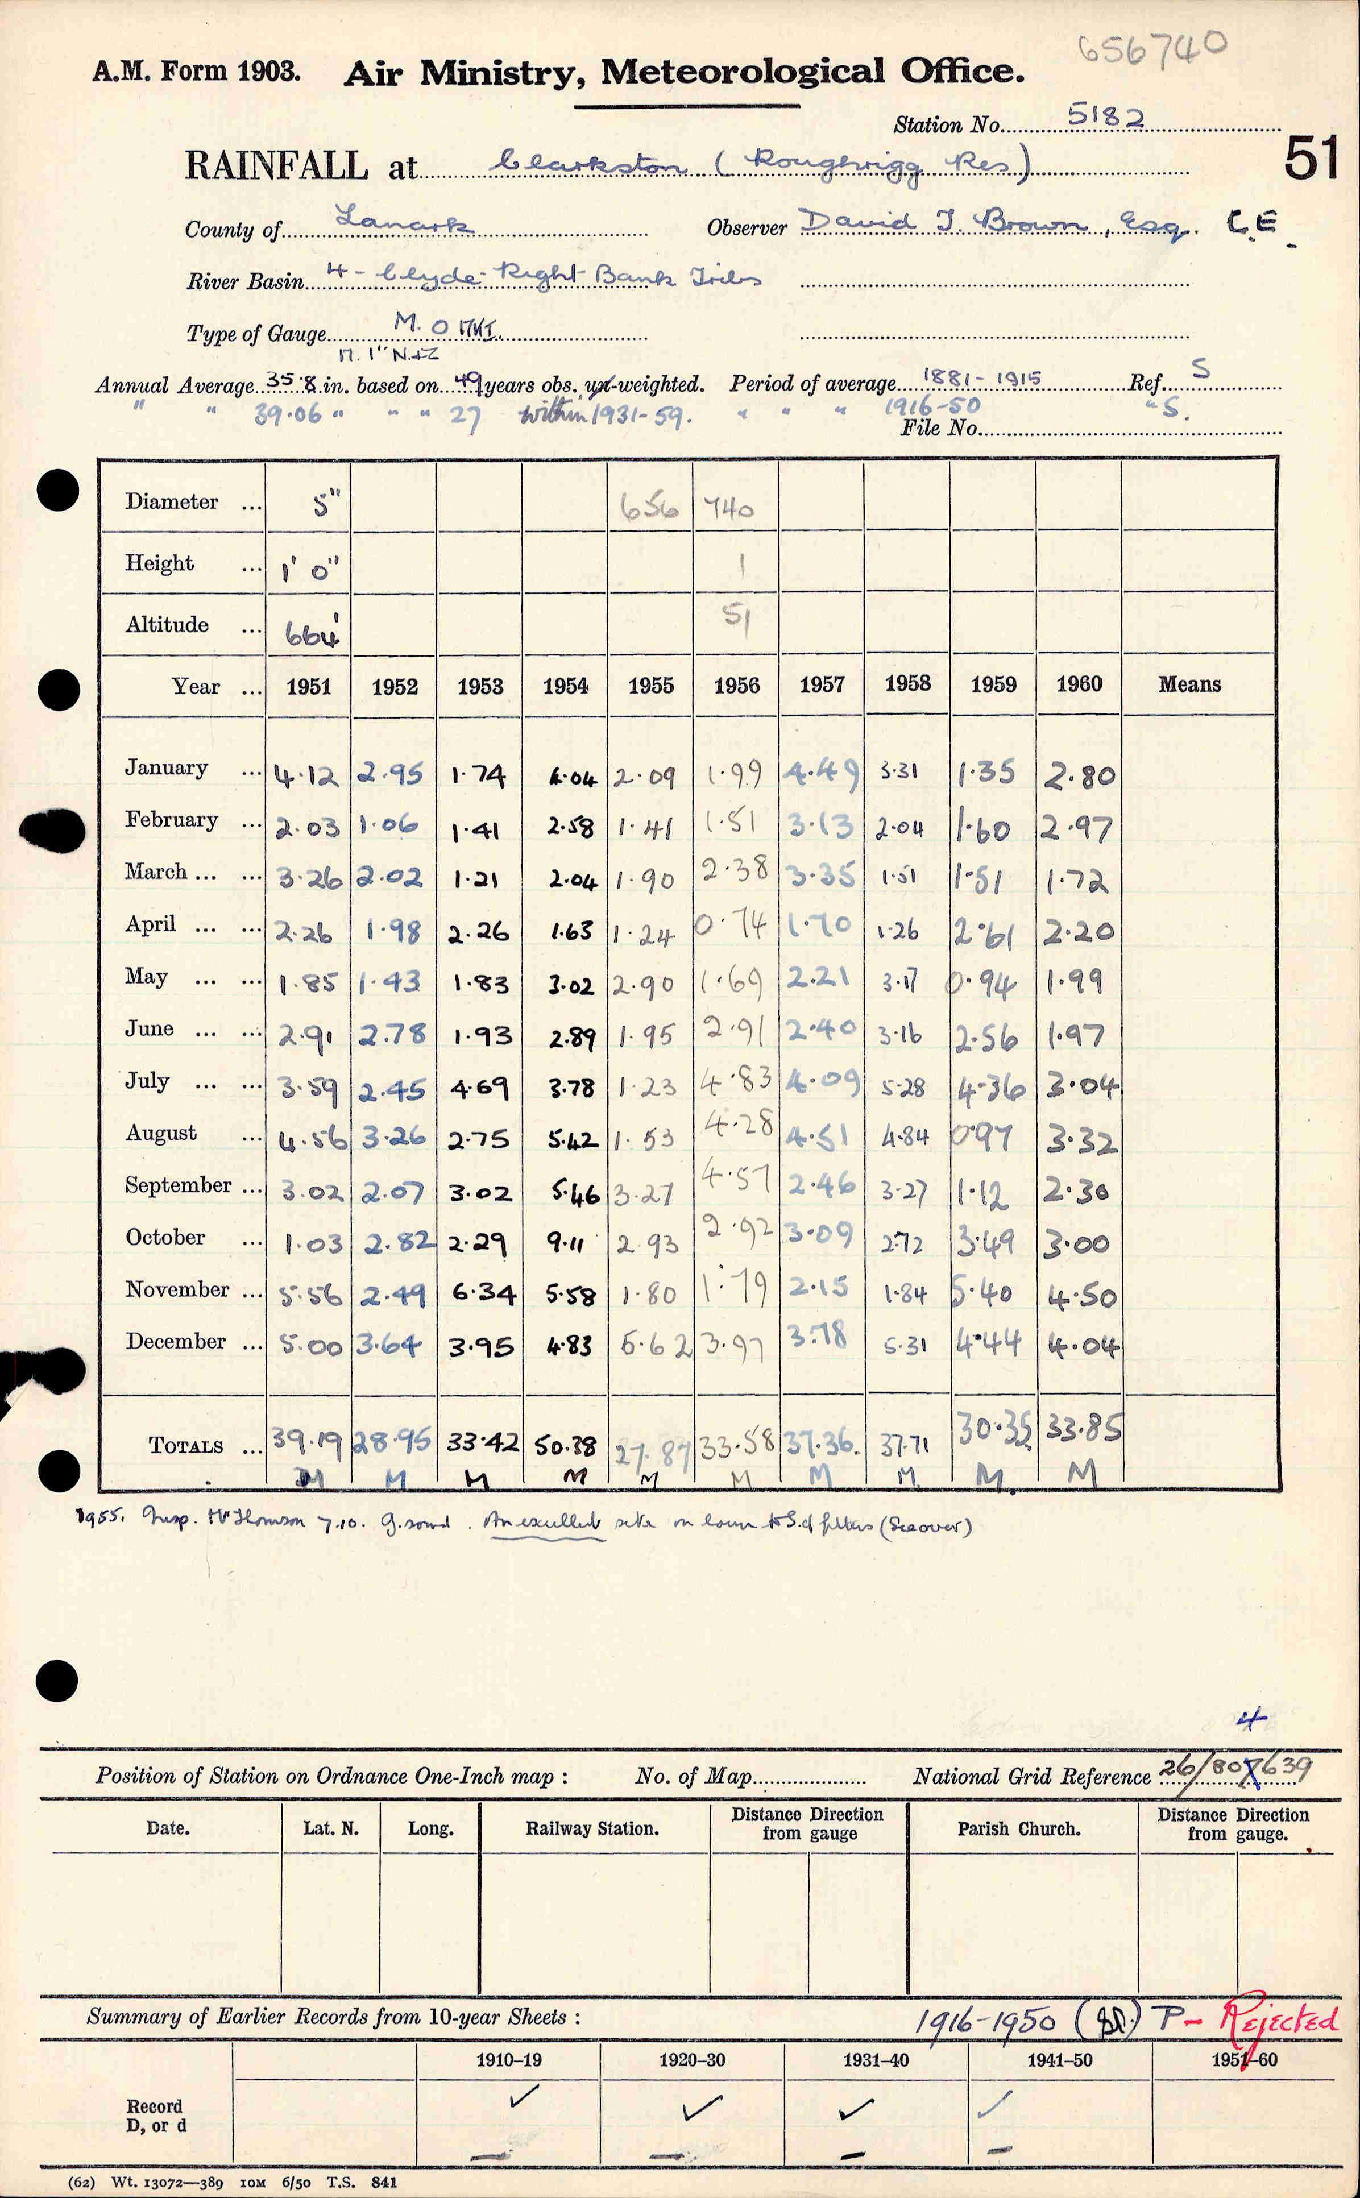 656740
A.M. Form 1903. Air Ministry, Meteorological Office.
Station No. 5182
RAINFALL at Clarkston (Roughrigg Res) 51
County of Lanark Observer David T. Brown, Esq. C.E.
River Basin 4 - Clyde - Right Bank Tribs
Type of Gauge M. O
Annual Average 35.8 in. based on 49 years obs. un-weighted. Period of average 1881-1915 Ref. S
" " 39.06 " " " 27 within 1931-59. " " " 1916-50 " S.
File No.
Diameter ... 5" 656 740
Height ... 1' 0" 1
Altitude ... 664' 51
Year ... 1951 1952 1953 1954 1955 1956 1957 1958 1959 1960 Means
January ... 4.12 2.95 1.74 4.04 2.09 1.99 4.49 3.31 1.35 2.80
February ... 2.03 1.06 1.41 2.58 1.41 1.51 3.13 2.04 1.60 2.97
March ... ... 3.26 2.02 1.21 2.04 1.90 2.38 3.35 1.51 1.51 1.72
April ... ... 2.26 1.98 2.26 1.63 1.24 0.74 1.70 1.26 2.61 2.20
May ... ... 1.85 1.43 1.83 3.02 2.90 1.69 2.21 3.17 0.94 1.99
June ... ... 2.91 2.78 1.93 2.89 1.95 2.91 2.40 3.16 2.56 1.97
July ... ... 3.59 2.45 4.69 3.78 1.23 4.83 4.09 5.28 4.36 3.04
August ... 4.56 3.26 2.75 5.42 1.53 4.28 4.51 4.84 0.97 3.32
September ... 3.02 2.07 3.02 5.46 3.27 4.57 2.46 3.27 1.12 2.30
October ... 1.03 2.82 2.29 9.11 2.93 2.92 3.09 2.72 3.49 3.00
November ... 5.56 2.49 6.34 5.58 1.80 1.79 2.15 1.84 5.40 4.50
December ... 5.00 3.64 3.95 4.83 5.62 3.97 3.78 5.31 4.44 4.04
TOTALS ... 39.19 28.95 33.42 50.38 27.87 33.58 37.36. 37.71 30.35 33.85
M M M M M M M M M. M
1955. Insp. Mr Thomson 7.10. G. sound. An excellent site on lawn to S. of filters (See over)
4
Position of Station on Ordnance One-Inch map : No. of Map National Grid Reference 26/807639
Date. Lat. N. Long. Railway Station. Distance Direction from gauge Parish Church. Distance Direction from gauge.
Summary of Earlier Records from 10-year Sheets : 1916-1950 P - Rejected
1910–19 1920–30 1931–40 1941–50 1951–60
Record
D, or d
(62) Wt. 13072—389 10M 6/50 T.S. 841